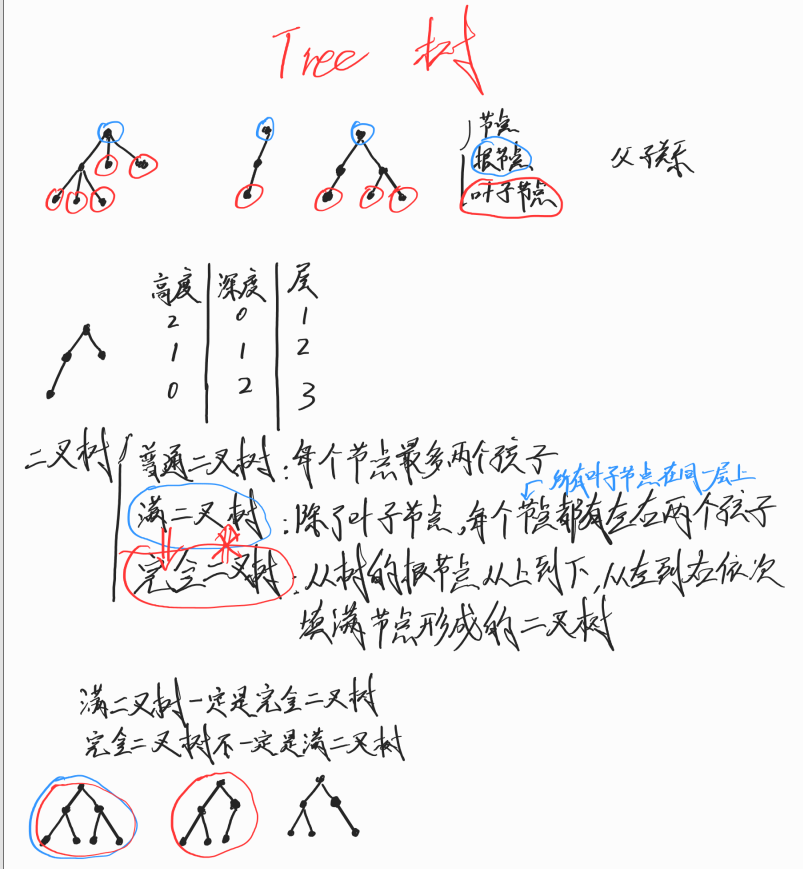 Tree 树
节点
根节点
叶子节点
父子关系
高度 深度 层
2 0 1
1 1 2
0 2 3
二叉树
普通二叉树:每个节点最多两个孩子
所有叶子节点在同一层上
满二叉树:除了叶子节点,每个节点都有左右两个孩子
完全二叉树:从树的根节点从上到下,从左到右依次
填满节点形成的二叉树
满二叉树一定是完全二叉树
完全二叉树不一定是满二叉树